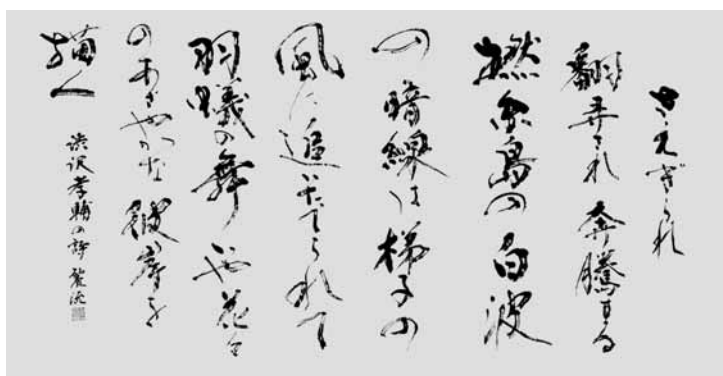 さえぎられ
翻弄され 奔騰する
撚糸島の白波
の暗線は梯子の
風に追いたてられて
羽蟻の舞いや花々
のあざやかな彼岸を
描く
渋沢孝輔の詩